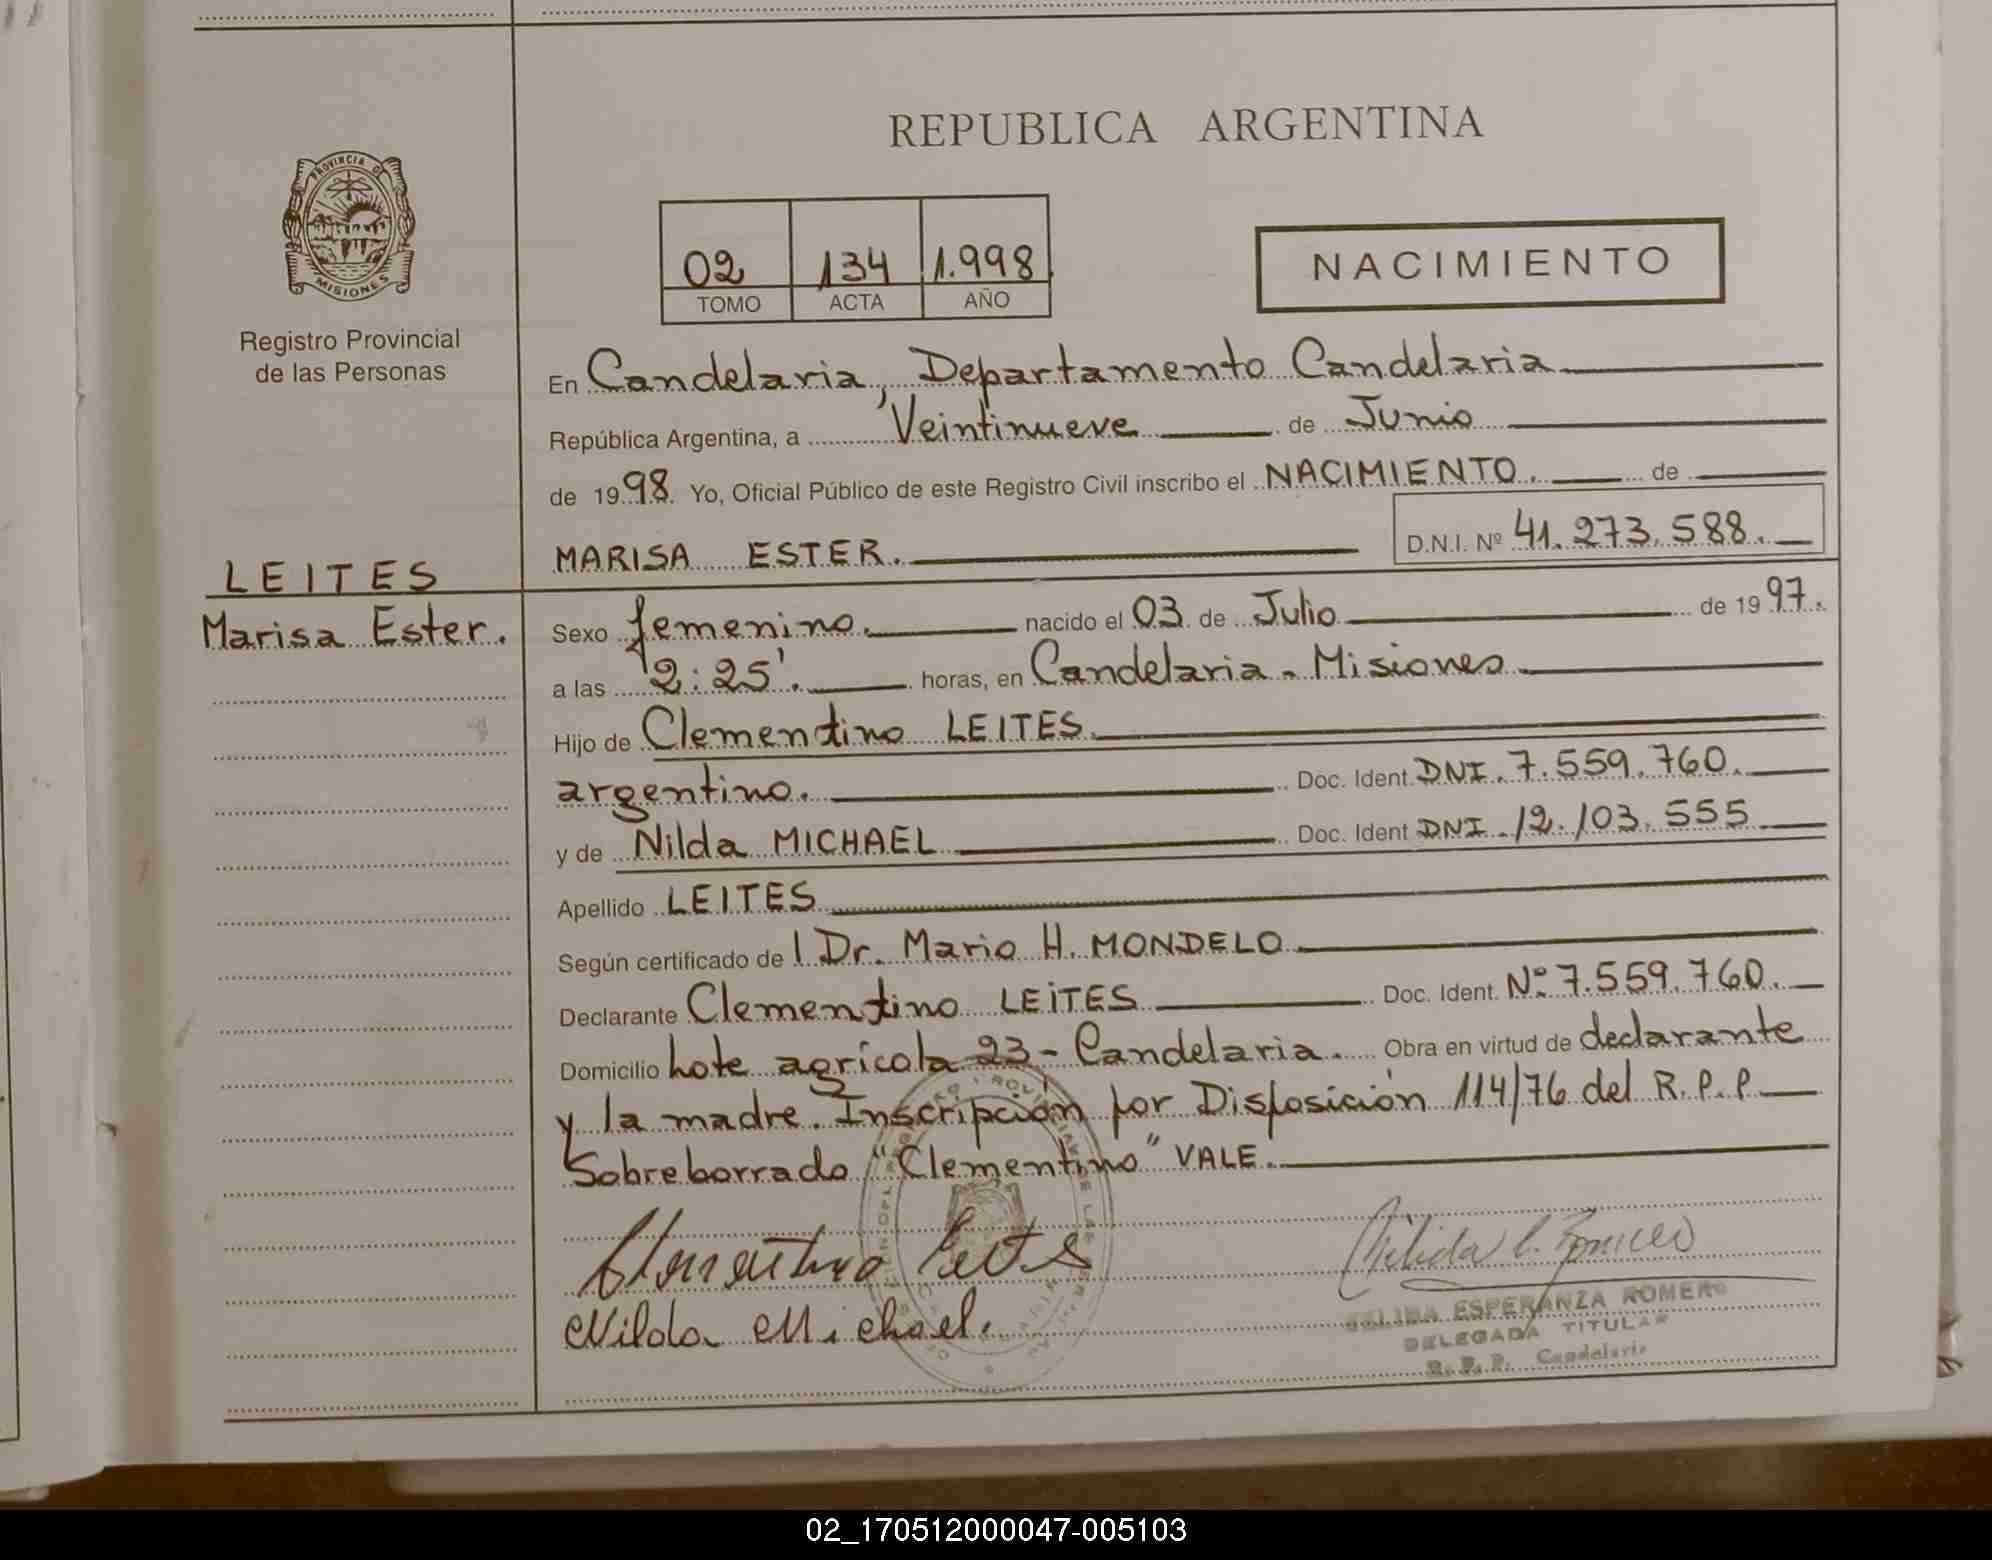 REPUBLICA ARGENTINA
PROVINCIA DE
MISIONES
Registro Provincial
de las Personas
02 134 1.998
TOMO ACTA AÑO
NACIMIENTO
En Candelaria, Departamento Candelaria
República Argentina, a Veintinueve de Junio
de 1998 Yo, Oficial Público de este Registro Civil inscribo el NACIMIENTO. de
MARISA ESTER. D.N.I. Nº 41.273.588.
LEITES
Marisa Ester.
Sexo femenino. nacido el 03 de Julio de 1997.
a las 2:25'. horas, en Candelaria - Misiones
Hijo de Clementino LEITES
argentino. Doc. Ident. DNI. 7.559.760.
y de Nilda MICHAEL Doc. Ident DNI. 12.103.555
Apellido LEITES
Según certificado de l Dr. Mario H. MONDELO
Declarante Clementino LEITES Doc. Ident. Nº 7.559.760.
Domicilio Lote agrícola 23 - Candelaria. Obra en virtud de declarante
y la madre. Inscripción por Disposición 114/76 del R.P.P.
Sobreborrado "Clementino" VALE.
Clementino Leites
Nilda Michael.
ESPERANZA ROMERO
DELEGADA TITULAR
R.P.P. Candelaria
02_170512000047-005103